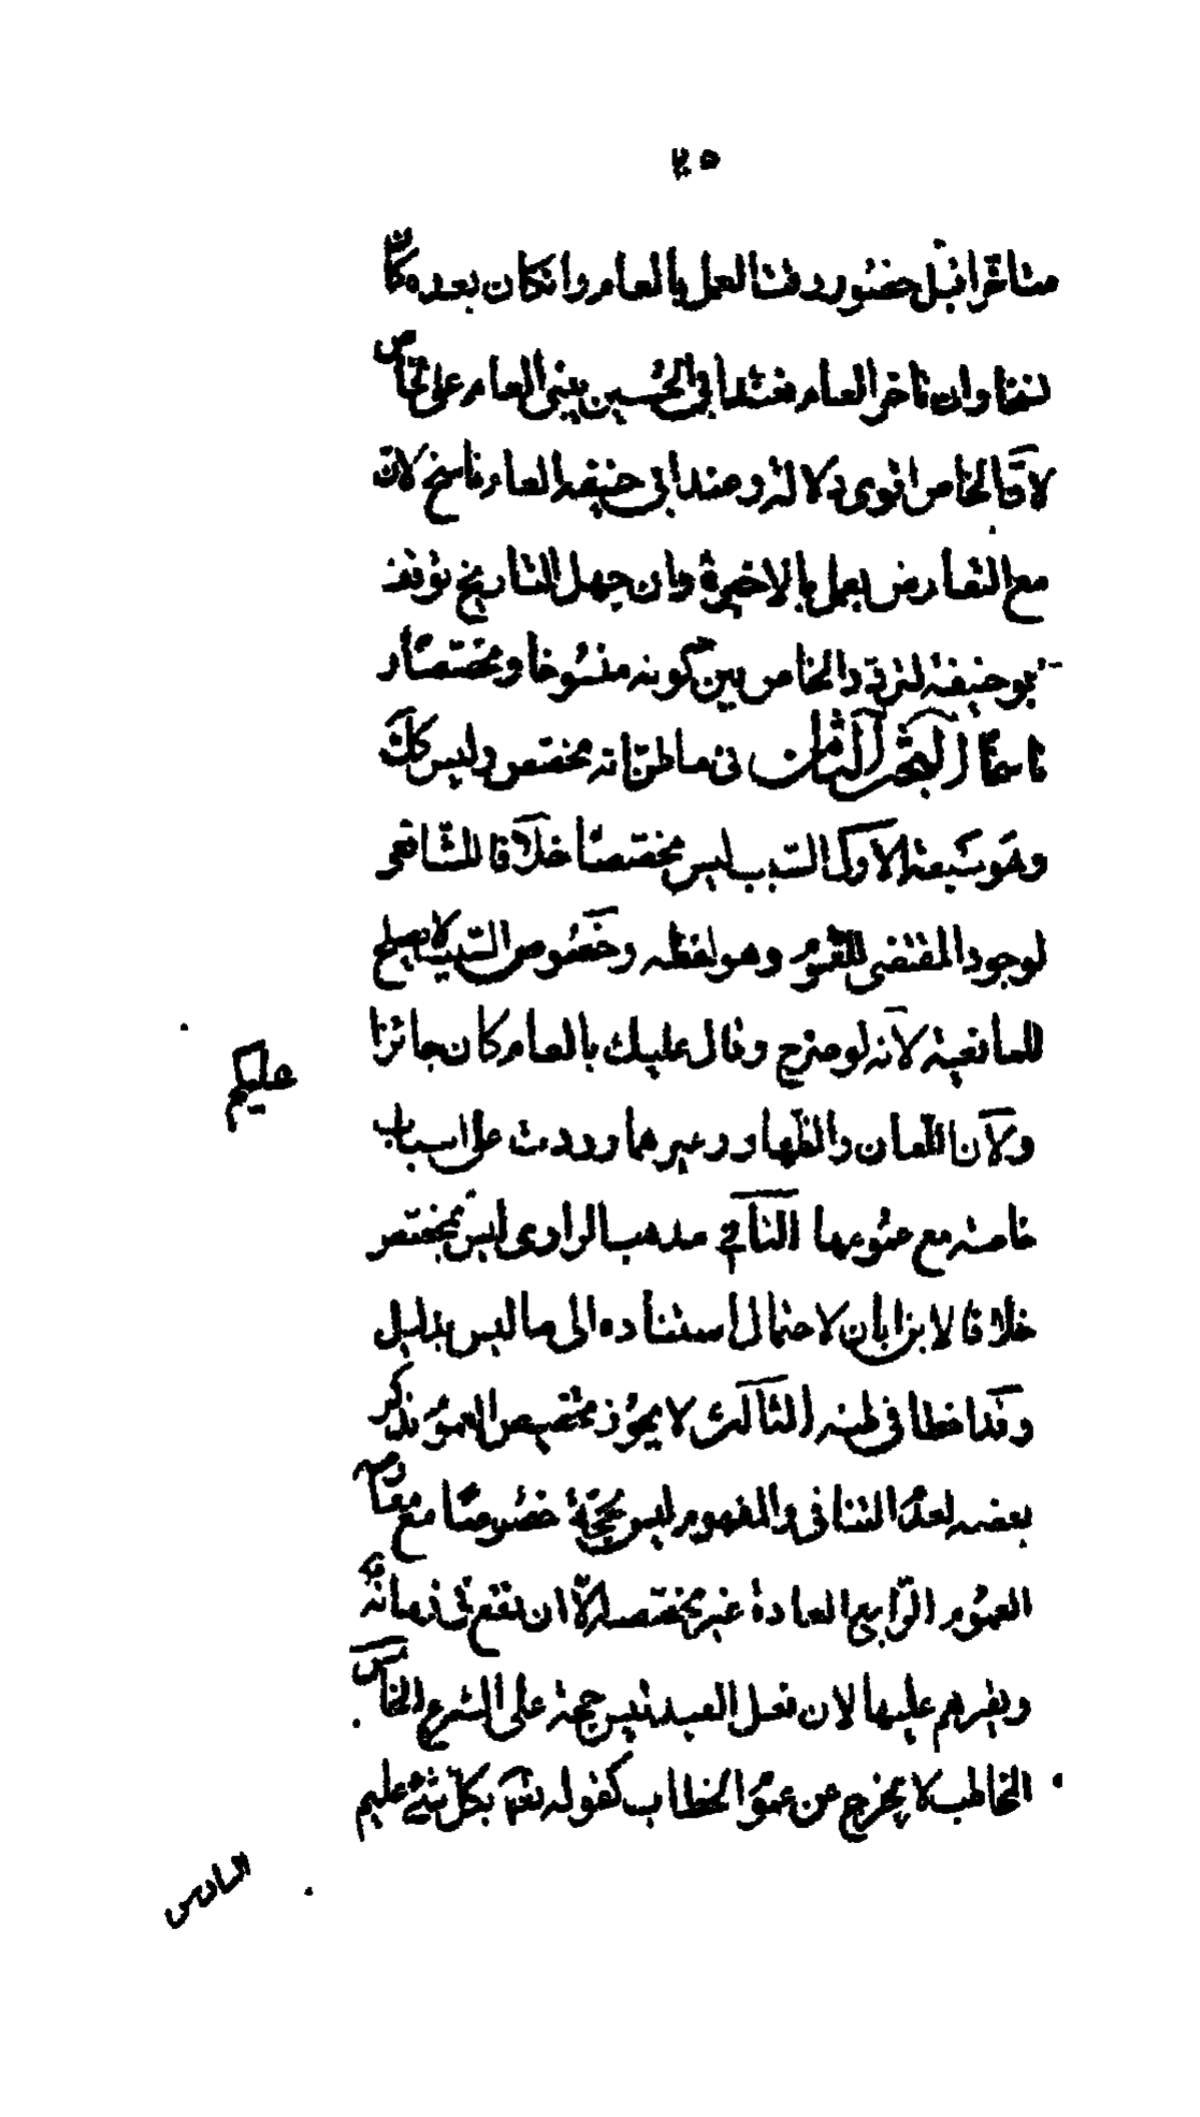 ٢٥
متاخرا قبل حضور وقت العمل بالعام وانكان بعده كان
نسخا وان تاخر العام فعند ابى الحسين يبنى العام على الخاص
لان الخاص اقوى دلالة وعند ابى حنيفه العام ناسخ لان
مع التعارض يعمل بالاخيرة وان جهل التاريخ توقف
ابو حنيفة لتردد الخاص بين كونه منسوخا ومخصصا و
ناسخا البحث الثامن فى ما ظن انه مخصص وليس كك
وهو سبعة الاول السبب ليس مخصصا خلافا للشافعى
لوجود المقتضى للعموم وهو لفظه وخصوص السبب لا يصلح
للمانعية لانه لو صرح وقال عليك بالعام كان جائزا
عليكم
ولان اللعان والظهار وغيرهما وردت على اسباب
خاصة مع عمومها الثانى مذهب الراوى ليس بمخصص
خلافا لابن ابان لاحتمال استناده الى ما ليس بدليل
وقد اخطا فى ظنه الثالث لا يجوز تخصيص العموم بذكر
بعضه لعدم التنافى والمفهوم ليس بحجة خصوصا مع معارضة
العموم الرابع العادة غير مخصصه الا ان تقع فى زمانه
ويقرهم عليها لان فعل العبد ليس حجة على الشرع الخامس
المخاطب لا يخرج عن عموم الخطاب كقوله تعالى بكل شئ عليم
السادس